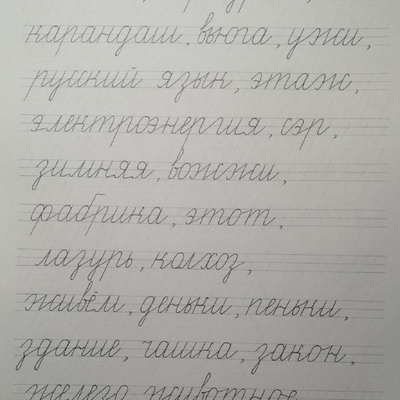 карандаш, вьюга, ужи,
русский язык, этаж,
электроэнергия, сэр,
зимняя, вожжи,
фабрика, этот,
лазурь, колхоз,
живём, деньки, пеньки,
здание, чашка, закон,
железо, животное